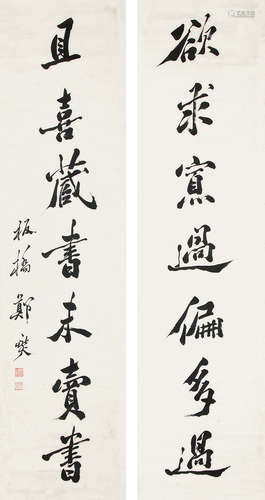 欲求寡過偏多過
且喜藏書未賣書
板橋鄭燮